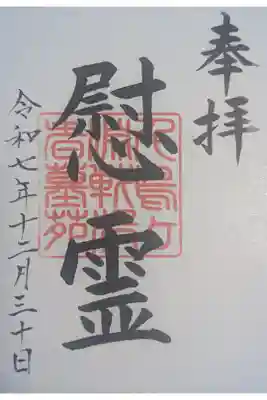 奉拝
慰霊
令和七年十二月三十日